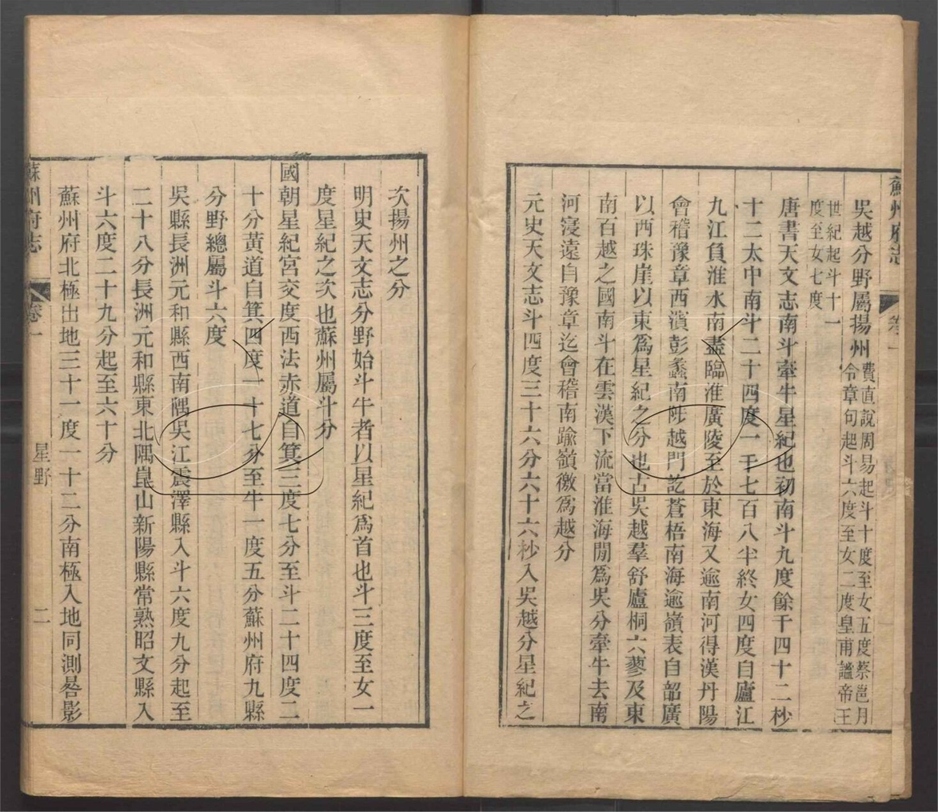 蘇州府志
卷一
吳越分野屬揚州 費直說周易起斗十度至女五度蔡邕月
令章句起斗六度至女二度皇甫謐帝王
世紀起斗十一
度至女七度
唐書天文志南斗牽牛星紀也初南斗九度餘千四十二杪
十二太中南斗二十四度一千七百八半終女四度自廬江
九江負淮水南盡臨淮廣陵至於東海又逾南河得漢丹陽
會稽豫章西濱彭蠡南陟越門訖蒼梧南海逾嶺表自韶廣
以西珠崖以東爲星紀之分也古吳越羣舒廬桐六蓼及東
南百越之國南斗在雲漢下流當淮海閒爲吳分牽牛去南
河寖遠自豫章迄會稽南踰嶺徼爲越分
元史天文志斗四度三十六分六十六杪入吳越分星紀之
次揚州之分
明史天文志分野始斗牛者以星紀爲首也斗三度至女一
度星紀之次也蘇州屬斗分
國朝星紀宮交度西法赤道自箕三度七分至斗二十四度二
十分黃道自箕四度一十七分至牛一度五分蘇州府九縣
分野總屬斗六度
吳縣長洲元和縣西南隅吳江震澤縣入斗六度九分起至
二十八分長洲元和縣東北隅崑山新陽縣常熟昭文縣入
斗六度二十九分起至六十分
蘇州府北極出地三十一度一十二分南極入地同測晷影
蘇州府志
卷一
星野
二